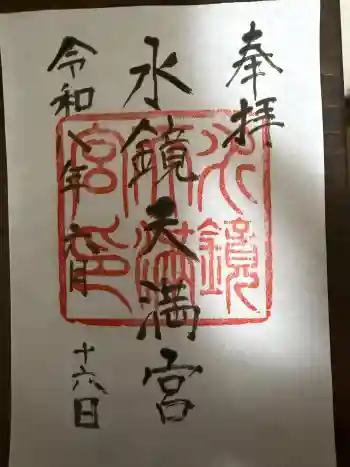 奉拝
水鏡天満宮
令和八年六月
十六日
水鏡
天満
宮印